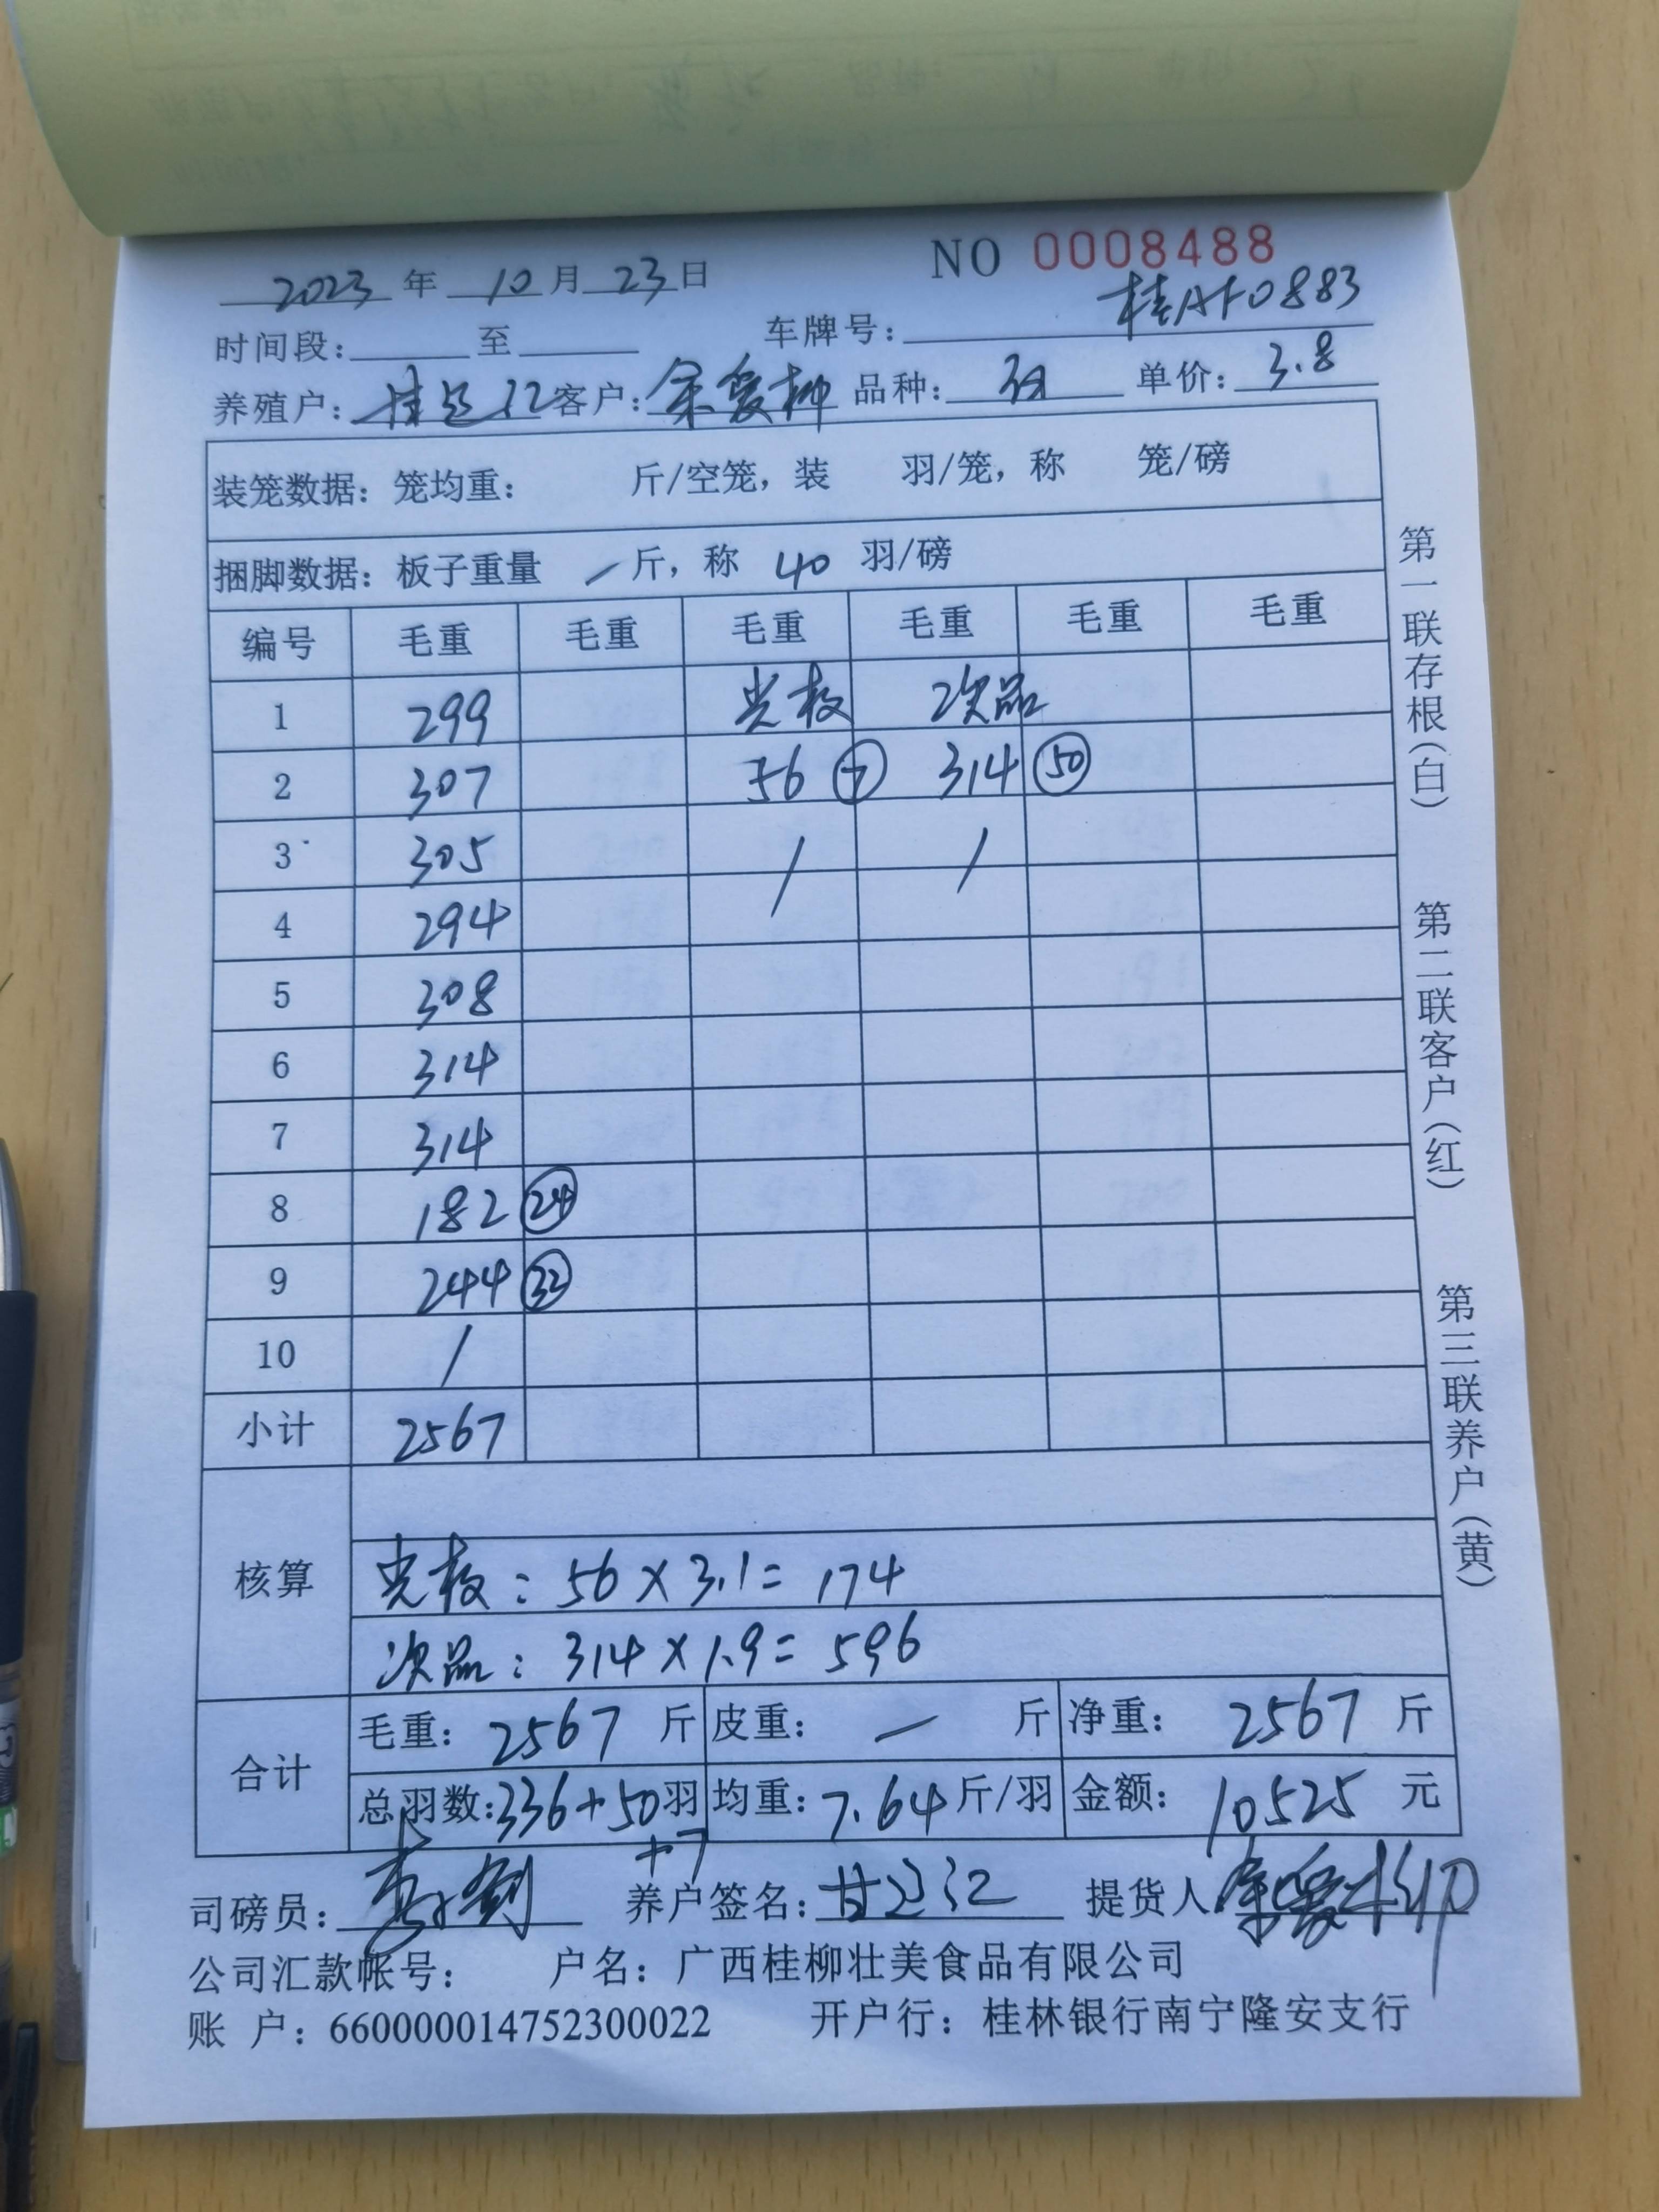 NO 0008488
2023 年 10 月 23 日
桂AF0883
时间段: 至 车牌号:
养殖户: 客户: 余爱柳 品种: 单价: 3.8
装笼数据: 笼均重: 斤/空笼, 装 羽/笼, 称 笼/磅
捆脚数据: 板子重量 / 斤, 称 40 羽/磅
编号 毛重 毛重 毛重 毛重 毛重 毛重
1 299 光板 次品
2 307 56 ⑦ 314 ㊿
3 305 / /
4 294
5 308
6 314
7 314
8 182 ㉔
9 244 ㉜
10 /
小计 2567
核算
光板: 56 × 3.1 = 174
次品: 314 × 1.9 = 596
合计
毛重: 2567 斤 皮重: — 斤 净重: 2567 斤
总羽数: 336+50 羽 均重: 7.64 斤/羽 金额: 10525 元
+7
司磅员: 养户签名: 提货人 余爱柳
公司汇款帐号: 户名: 广西桂柳壮美食品有限公司
账 户: 660000014752300022 开户行: 桂林银行南宁隆安支行
第一联存根(白)
第二联客户(红)
第三联养户(黄)